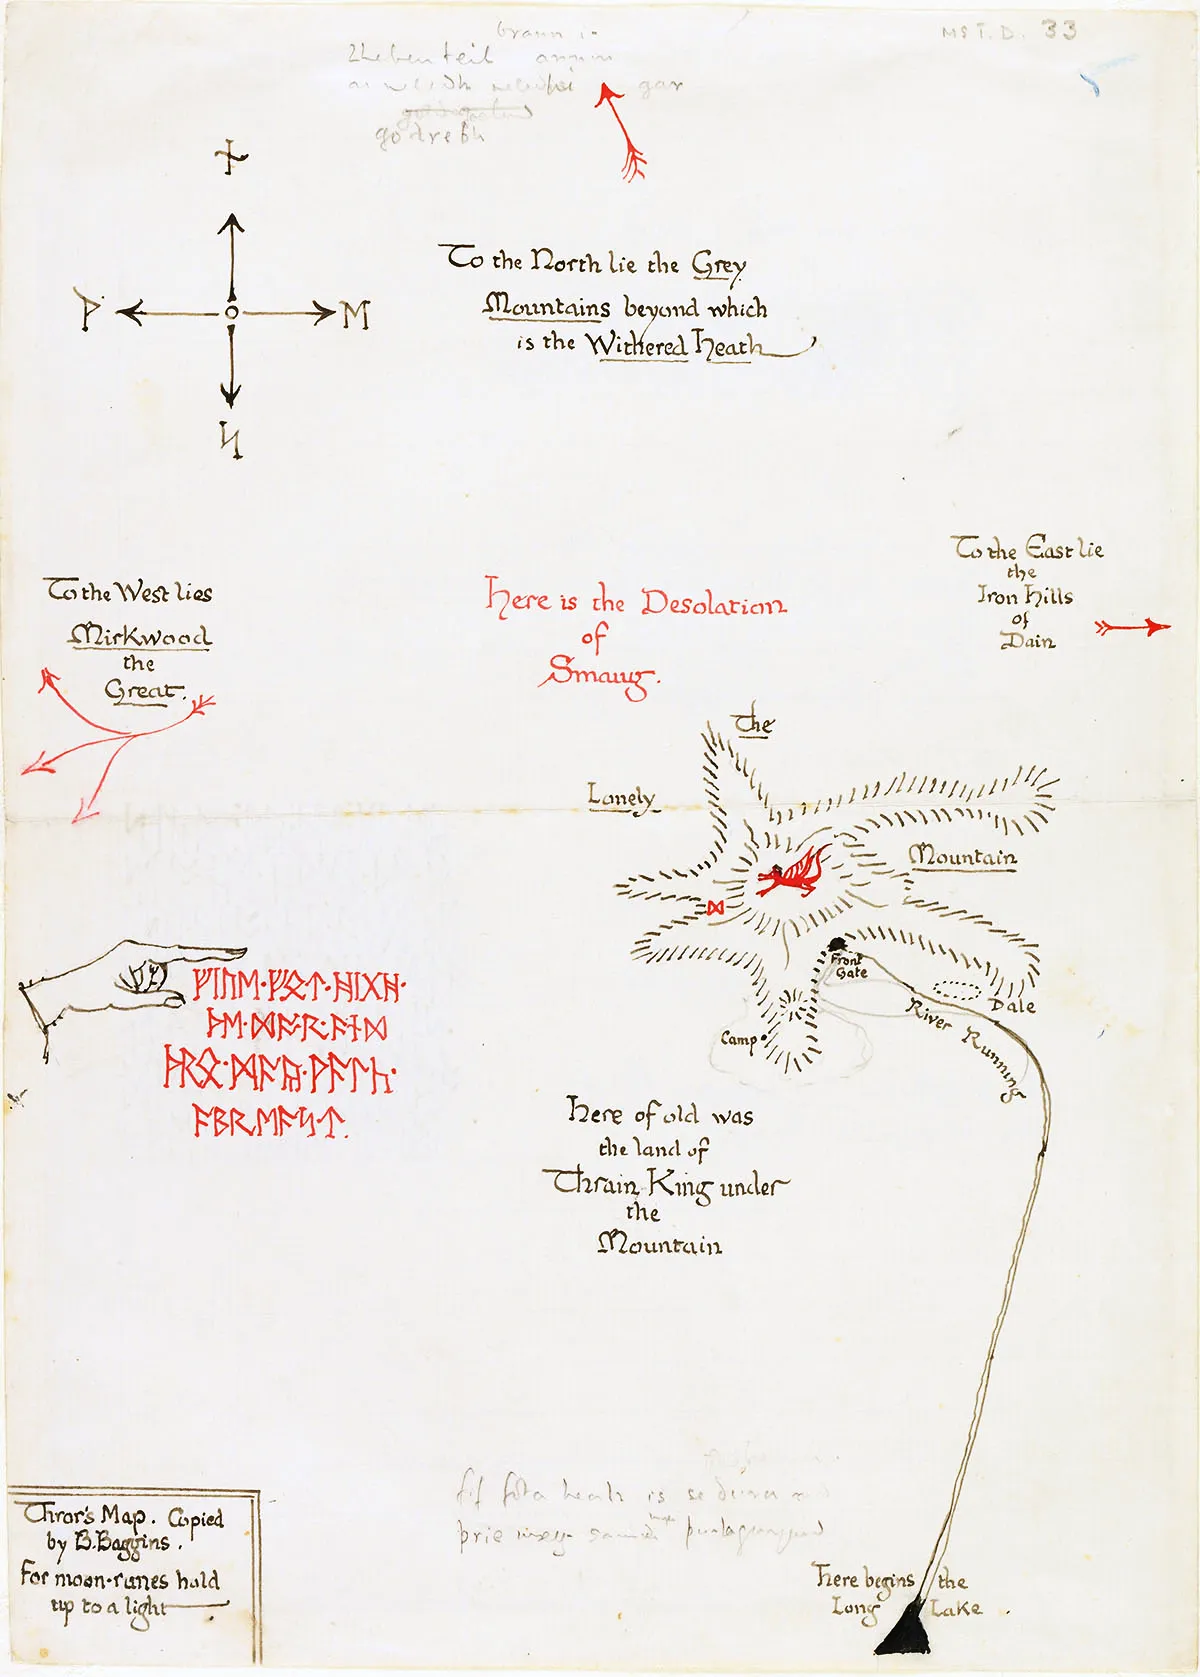 MS T. D. 33
ᚾ
ᚹ ᛖ
ᛋ
To the North lie the Grey
Mountains beyond which
is the Withered Heath
To the East lie
the
Iron Hills
of
Dain
To the West lies
Mirkwood
the
Great.
Here is the Desolation
of
Smaug.
The
Lonely
Mountain
ᛞ
Front
Gate
Dale
River Running
Camp
ᚠᛁᚢᛖ·ᚠᛟᛏ·ᚻᛁᚷᚻ·
ᚦᛖ·ᛞᚩᚱ·ᚪᚾᛞ
ᚦᚱᛟ·ᛗᚪᚣ·ᚹᚪᛚᚳ·
ᚪᛒᚱᛖᚪᛋᛏ.
Here of old was
the land of
Thrain King under
the
Mountain
Thror's Map. Copied
by B. Baggins.
For moon-runes hold
up to a light
Here begins the
Long Lake.